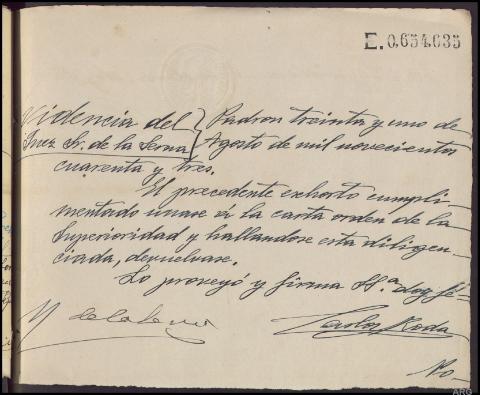 E. 0.654.635
videncia del } Padron treinta y uno de
Juez Sr. de la Serna } Agosto de mil novecientos
cuarenta y tres.
El precedente exhorto cumpli-
mentado unase á la carta orden de la
Superioridad y hallandose esta diligen-
ciada, devuelvase.
Lo proveyó y firma S.Sª doy fé-
M de la Serna
Carlos Roda
No-
ARG